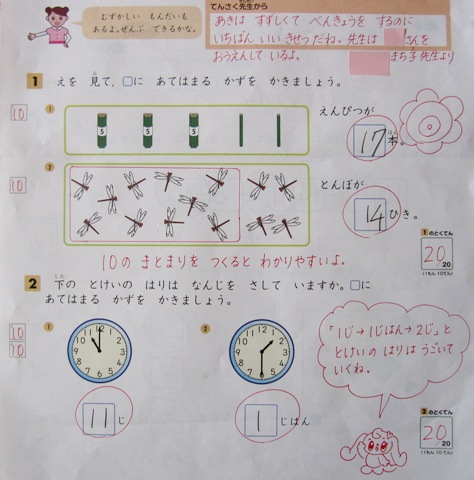 てんさく先生から
むずかしい もんだいも
あるよ。ぜんぶ できるかな。
あきは すずしくて べんきょうを するのに
いちばん いい きせつだね。先生は さんを
おうえんして いるよ。 まち子先生より
1 えを 見て、□に あてはまる かずを かきましょう。
み
10
①
5 5 5
えんぴつが
17本。
ほん
10
②
とんぼが
14ひき。
10の まとまりを つくると わかりやすいよ。
1のとくてん
20
/20
(1もん10てん)
2 下の とけいの はりは なんじを さして いますか。□に
した
あてはまる かずを かきましょう。
10
10
①
12 1 2 3 4 5 6 7 8 9 10 11
11じ
②
12 1 2 3 4 5 6 7 8 9 10 11
1じはん
「1じ→1じはん→2じ」と
とけいの はりは うごいて
いくね。
2のとくてん
20
/20
(1もん10てん)